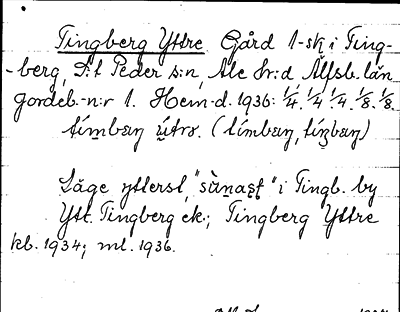 Tingberg Yttre Gård 1-sk i Ting-
-berg, S:t Peder s:n, Ale hr:d Älfsb. län
Jordeb.-n:r 1. Hem-d. 1936: 1/4. 1/4 1/4. 1/8. 1/8.
Läge ytterst, i Tingb. by
Ytt. Tingberg ek.; Tingberg Yttre
kb. 1934; ml. 1936.